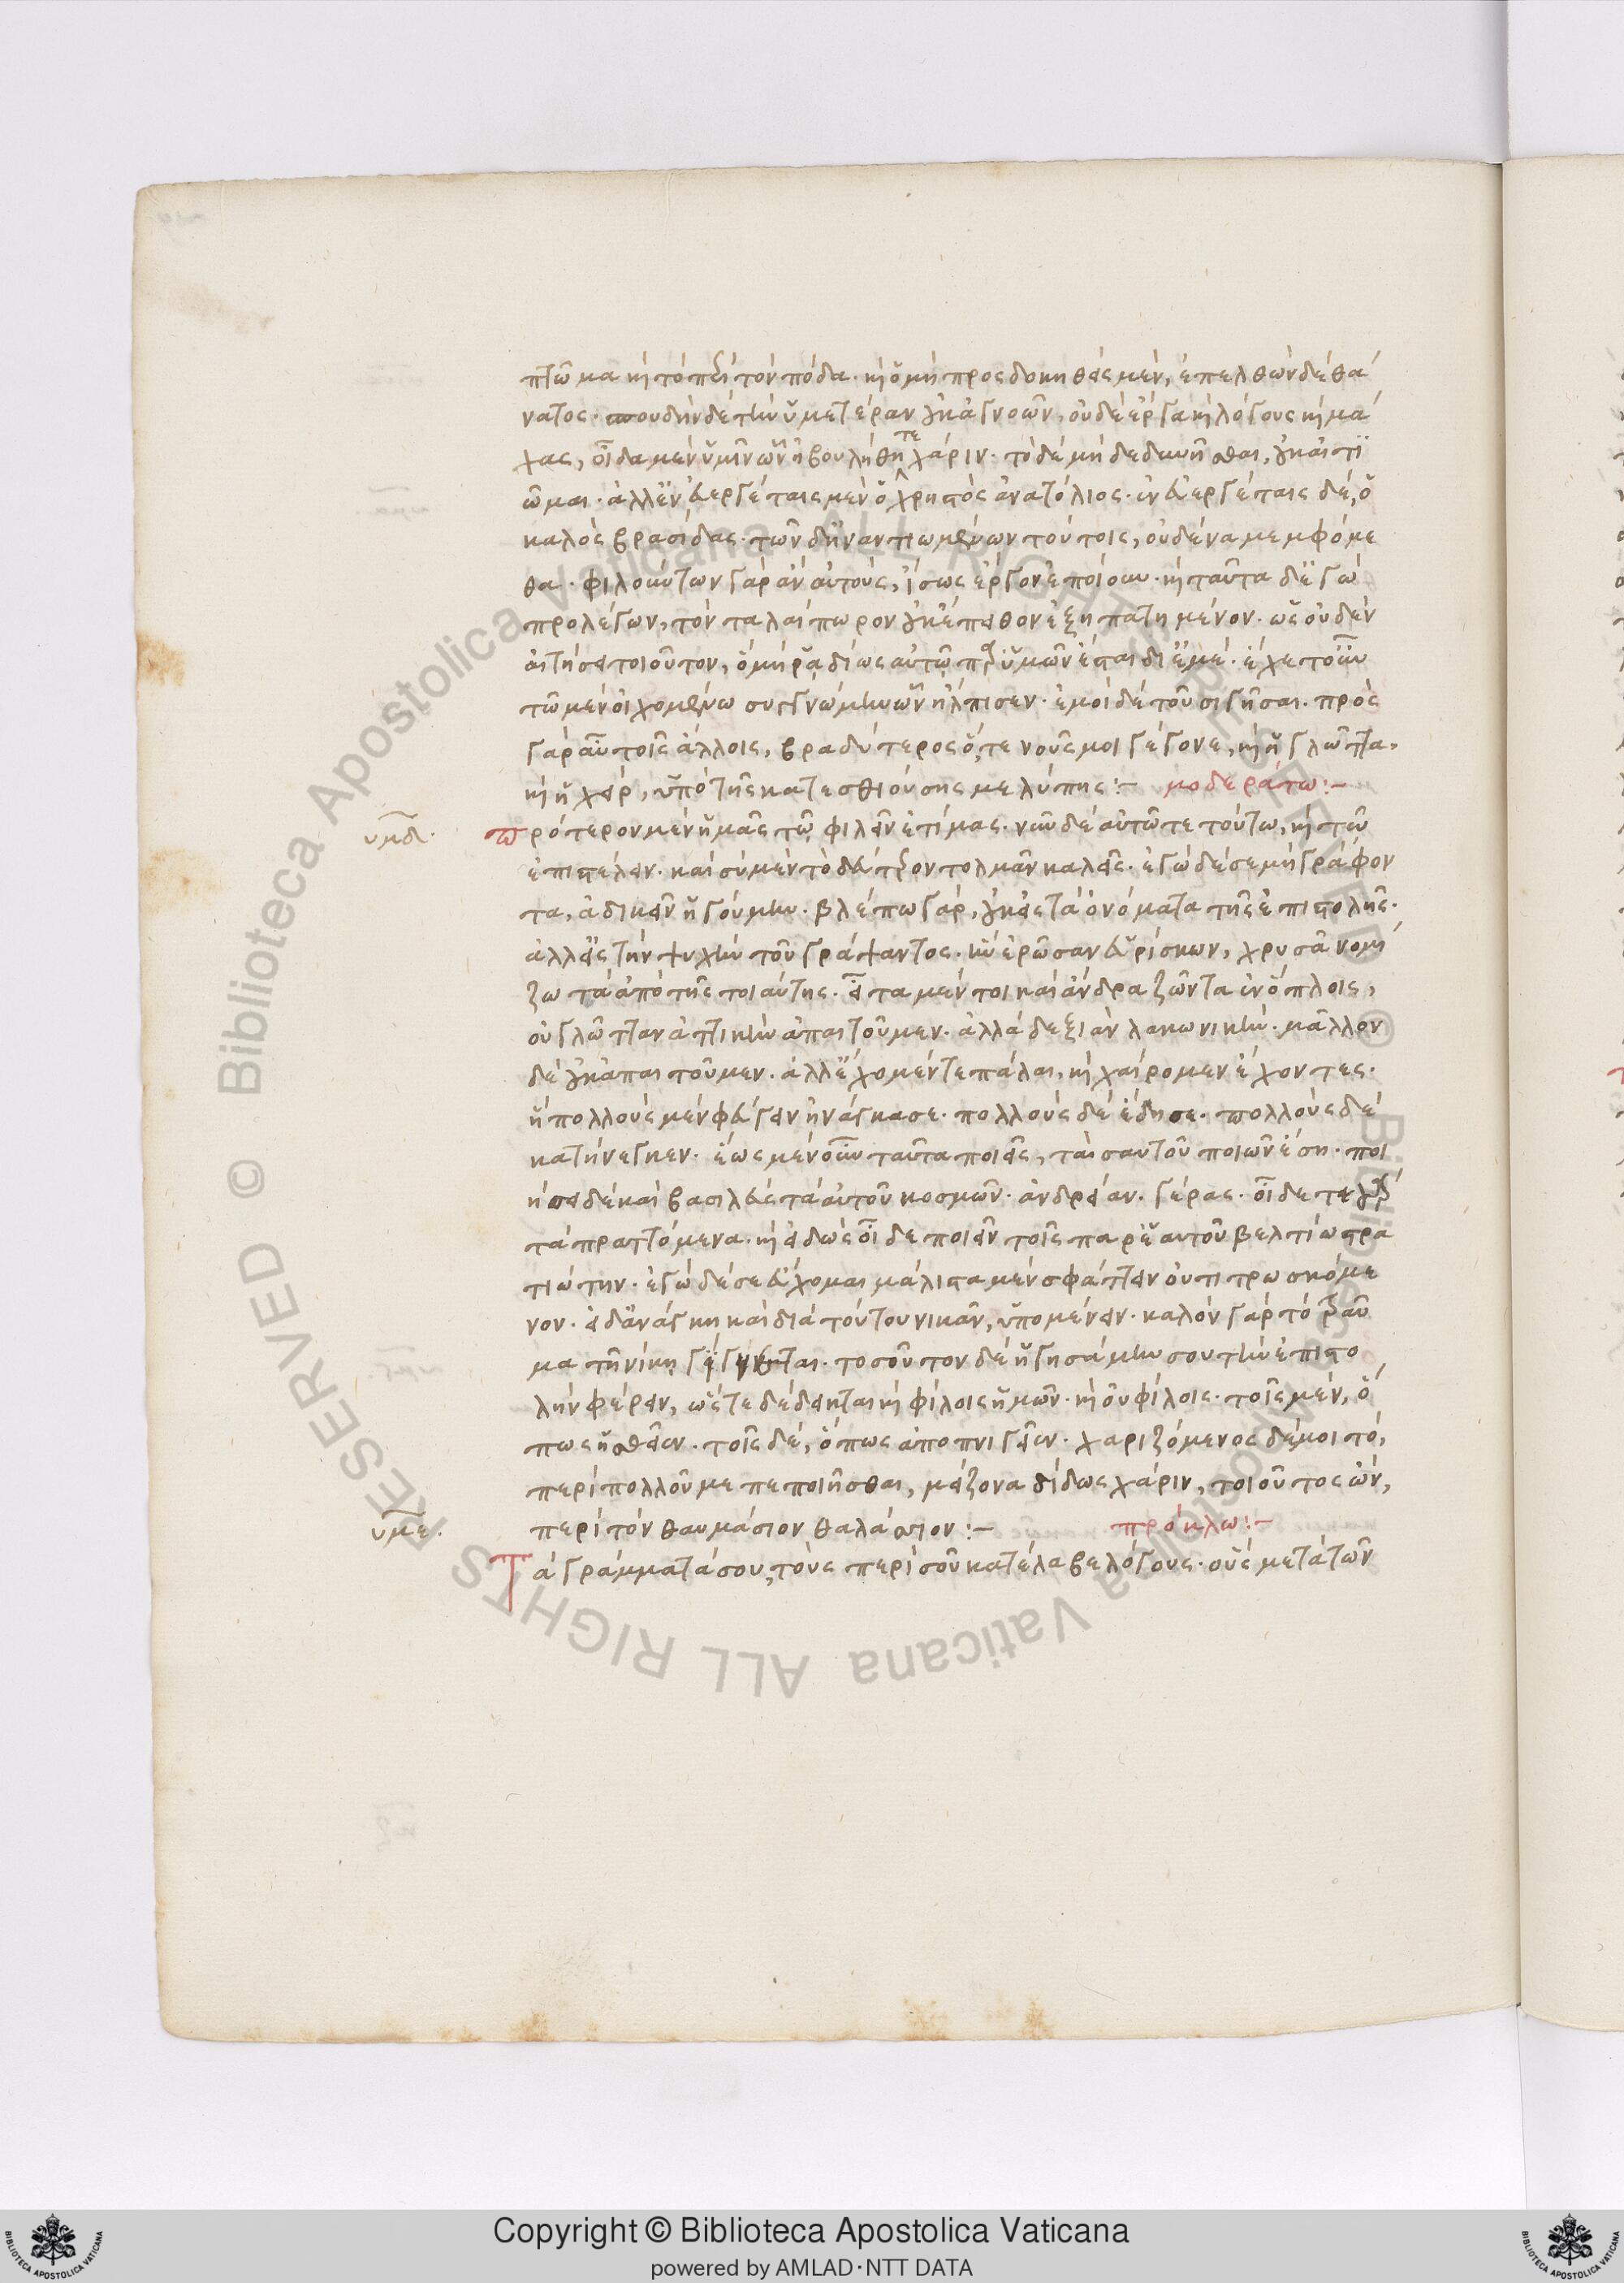 πτῶμα καὶ τὸ περὶ τὸν πόδα. καὶ ὁ μὴ προσδοκηθεὶς μὲν, ἐπελθὼν δὲ θά
νατος. σπουδὴν δὲ τὴν ὑμετέραν οὐκ ἀγνοῶν, οὐδὲ ἔργα καὶ λόγους καὶ μά
χας, οἶδα μὲν ὑμῖν ὧν ἠβουλήθητε χάριν. τὸ δὲ μὴ δεδυνῆσθαι, οὐκ αἰτι
ῶμαι. ἀλλ' ἐν εὐεργέταις μὲν ὁ χρηστὸς ἀνατόλιος. ἐν εὐεργέταις δὲ, ὁ
καλὸς βρασίδας. τῶν δ' ἠναντιωμένων τούτοις, οὐδένα μεμφόμε
θα. φιλούντων γὰρ ἂν αὐτοὺς, ἴσως ἔργον ἐποίουν. καὶ ταῦτα δ' ἐγὼ
προλέγων, τὸν ταλαίπωρον οὐκ ἔπειθον ἐξηπατημένον. ὡς οὐδὲν
αἰτήσει τοιοῦτον, ὃ μὴ ῥαδίως αὐτῷ παρ' ὑμῶν ἔσται δι' ἐμέ. ἔχε τοίνυν
τῷ μὲν οἰχομένω συγγνώμην ὧν ἤλπισεν. ἐμοὶ δὲ τοῦ σιγῆσαι. πρὸς
γὰρ αὖ τοῖς ἄλλοις, βραδύτερος ὅ,τε νοῦς μοι γέγονε, καὶ ἡ γλῶττα,
καὶ ἡ χεὶρ, ὑπὸ τῆς κατεσθιούσης με λύπης :- μοδεράτω :-
υμδ. Πρότερον μὲν ἡμᾶς τῷ φιλεῖν ἐτίμας. νῦν δὲ αὐτῶ τε τούτω, καὶ τῷ
ἐπιστέλλειν. καὶ σὺ μὲν τὸ δεύτερον τολμᾶν καλεῖς. ἐγὼ δέ σε μὴ γράφον
τα, ἀδικεῖν ἡγούμην. βλέπω γὰρ, οὐκ εἰς τὰ ὀνόματα τῆς ἐπιστολῆς.
ἀλλ' εἰς τὴν ψυχὴν τοῦ γράψαντος. ἣν ἐρῶσαν εὑρίσκων, χρυσᾶ νομί
ζω τὰ ἀπὸ τῆς τοιαύτης. εἶτα μέντοι καὶ ἄνδρα ζῶντα ἐν ὅπλοις,
οὐ γλῶτταν ἀττικὴν ἀπαιτοῦμεν. ἀλλὰ δεξιὰν λακωνικήν. μᾶλλον
δὲ οὐκ ἀπαιτοῦμεν. ἀλλ' ἔχομέν τε πάλαι, καὶ χαίρομεν ἔχοντες.
ἣ πολλοὺς μὲν φεύγειν ἠνάγκασε. πολλοὺς δὲ ἔδησε. πολλοὺς δὲ
κατήνεγκεν. ἕως μὲν οὖν ταῦτα ποιεῖς, τὰ σαυτοῦ ποιῶν ἔση. ποι
ήσει δὲ καὶ βασιλεὺς τὰ αὐτοῦ κοσμῶν. ἀνδρείαν. γέρας. οἶδέ τε γὰρ
τὰ πραττόμενα. καὶ εἰδὼς οἶδε ποιεῖν τοῖς παρ' ἑαυτοῦ βελτίω στρα
τιώτην. ἐγὼ δέ σε εὔχομαι μάλιστα μὲν σφάττειν οὐ τιτρωσκόμε
νον. εἰ δ' ἀνάγκη καὶ διὰ τούτου νικᾶν, ὑπομένειν. καλὸν γὰρ τὸ τραῦ
μα τῇ νίκῃ γίγνεται. τοσοῦτον δὲ ἡγησάμην σου τὴν ἐπιστο
λὴν φέρειν, ὥστε δέδεικται καὶ φίλοις ἡμῶν. καὶ οὐ φίλοις. τοῖς μὲν, ὅ
πως ἡσθεῖεν. τοῖς δὲ, ὅπως ἀποπνιγεῖεν. χαριζόμενος δέ μοι τὸ,
περὶ πολλοῦ με πεποιῆσθαι, μείζονα δίδως χάριν, τοιοῦτος ὢν,
υμε. περὶ τὸν θαυμάσιον θαλάσσιον :- πρόκλω :-
Τὰ γράμματά σου, τοὺς περὶ σοῦ κατέλαβε λόγους. οὓς μετὰ τῶν
Copyright © Biblioteca Apostolica Vaticana
powered by AMLAD·NTT DATA